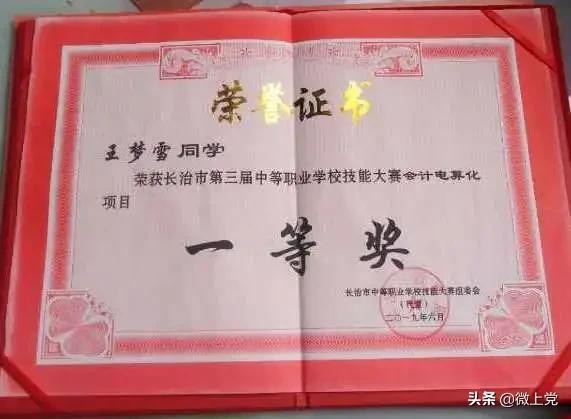 荣誉证书
王梦雪同学
荣获长治市第三届中等职业学校技能大赛会计电算化
项目
一等奖
长治市中等职业学校技能大赛组委会
(代章)
二〇一九年六月
头条@微上党